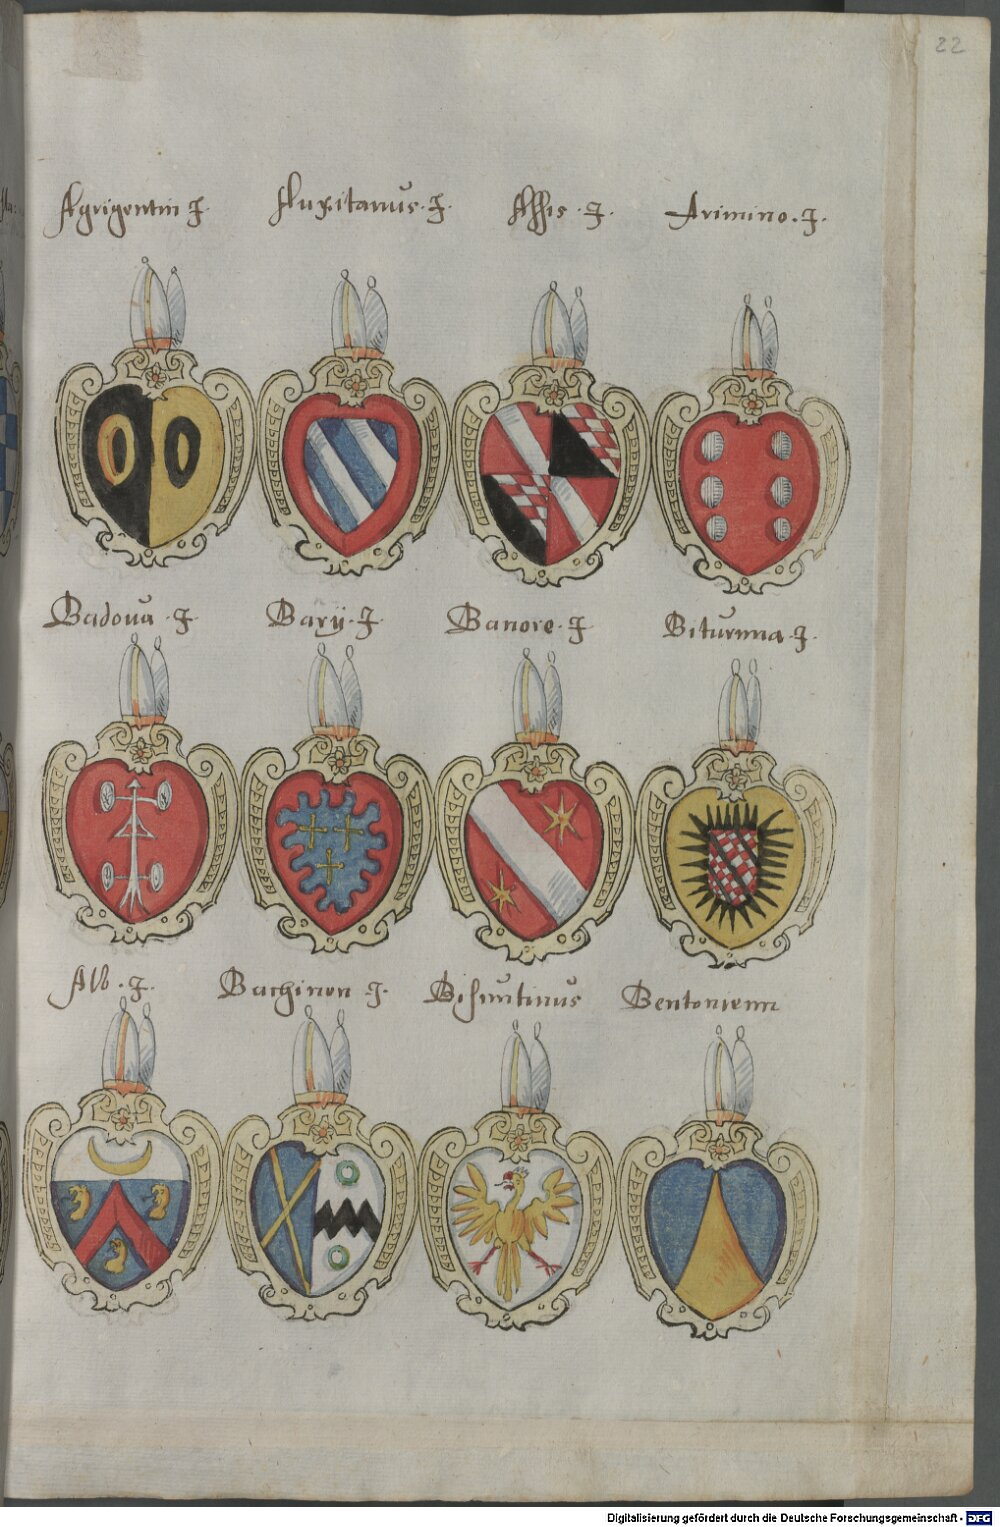 22
Agrigentin J.
Auxitanus. J.
Assis. J.
Arimino. J.
Badoua. J.
Bary. J.
Banore. J.
Biturnna. J.
Alb. J.
Bachinon J.
Bisuntinus
Bentonienn
Digitalisierung gefördert durch die Deutsche Forschungsgemeinschaft - DFG